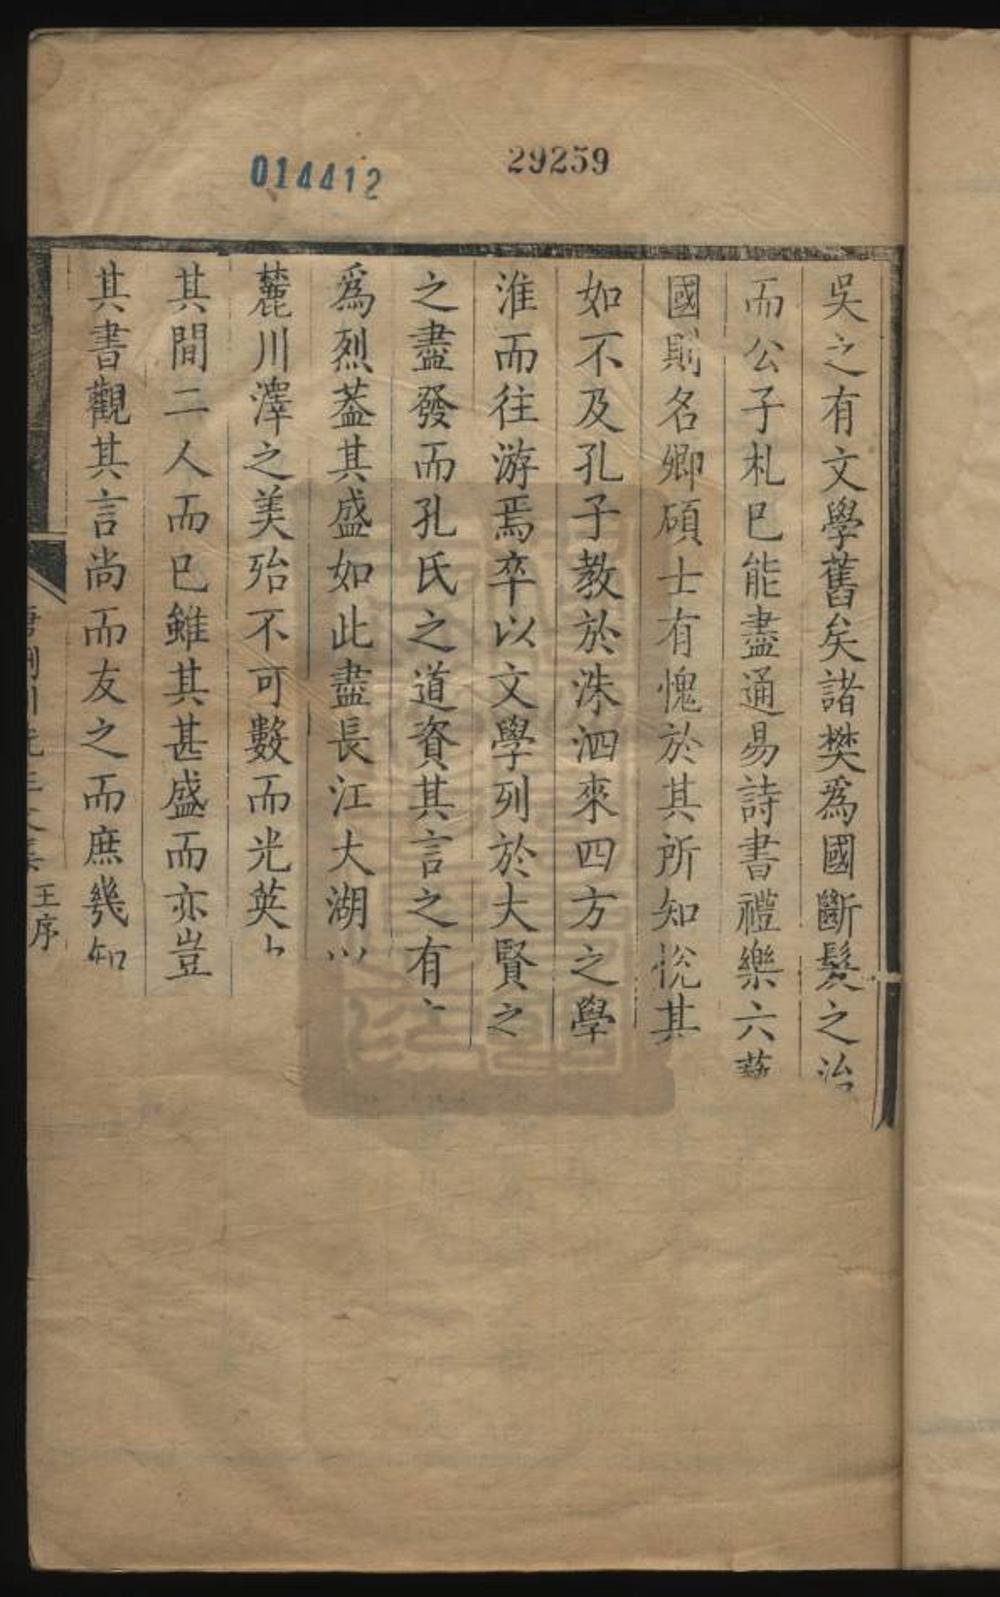 014412
29259
吳之有文學舊矣諸樊爲國斷髮之治
而公子札巳能盡通易詩書禮樂六藝
國則名卿碩士有愧於其所知悅其
如不及孔子教於洙泗來四方之學
淮而往游焉卒以文學列於大賢之
之盡發而孔氏之道資其言之有
爲烈葢其盛如此盡長江大湖
麓川澤之美殆不可數而光英
其間二人而巳雖其甚盛而亦豈
其書觀其言尚而友之而庶幾知
唐荆川先生文集 王序